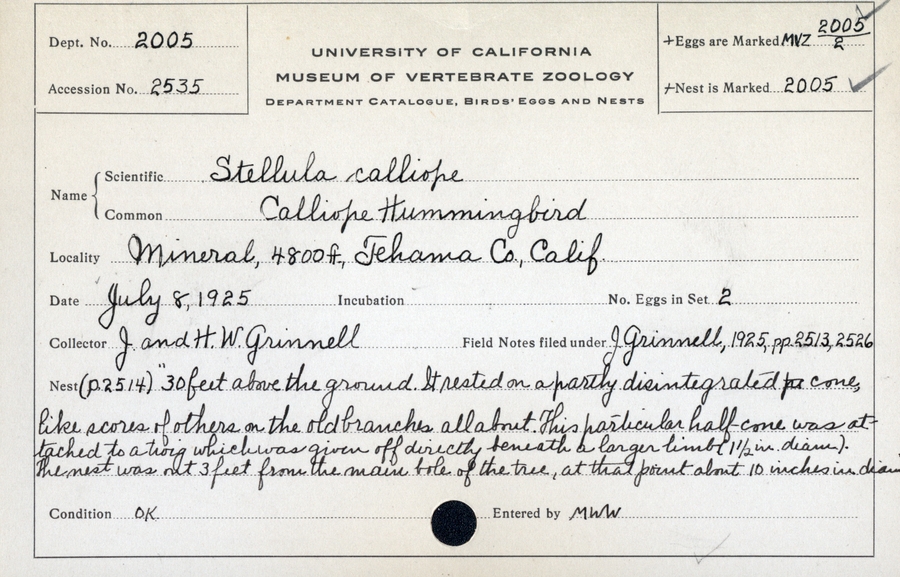 Dept. No. 2005
Accession No. 2535
UNIVERSITY OF CALIFORNIA
MUSEUM OF VERTEBRATE ZOOLOGY
DEPARTMENT CATALOGUE, BIRDS' EGGS AND NESTS
+Eggs are Marked MVZ 2005/2
+Nest is Marked 2005
Name
Scientific Stellula calliope
Common Calliope Hummingbird
Locality Mineral, 4800 ft., Tehama Co., Calif.
Date July 8, 1925 Incubation No. Eggs in Set 2
Collector J. and H. W. Grinnell Field Notes filed under J Grinnell, 1925, pp. 2513, 2526
Nest (p. 2514) "30 feet above the ground. It rested on a partly disintegrated cone,
like scores of others on the old branches all about. This particular half-cone was at-
tached to a twig which was given off directly beneath a larger limb (1 1/2 in. diam.).
The nest was out 3 feet from the main bole of the tree, at that point about 10 inches in diam
Condition OK Entered by MWW